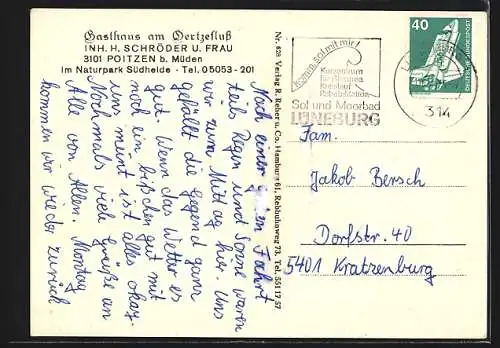 Gasthaus am Oertzefluß
INH. H. SCHRÖDER U. FRAU
3101 POITZEN b. Müden
Im Naturpark Südheide · Tel. 05053-201
Nach einer Fahrt
teils Regen und Sonne waren
wir zum Mittag hier. Uns
gefällt die Gegend ganz
gut. Wenn das Wetter es
noch ein bißchen gut mit
uns meint ist alles okay.
Nochmals viele Grüße an
Alle von Allen. Montag
kommen wir wieder zurück
Nr. 828 Verlag R. Reher u. Co. Hamburg 61, Rebhuhnweg 73, Tel. 551 17 57
komm, sol mit mir!
Kurzentrum
für Rheuma
Kreislauf
Rehabilitation
Sol und Moorbad
LÜNEBURG
40
DEUTSCHE BUNDESPOST
314
Fam.
Jakob Bersch
Dorfstr. 40
5401 Kratzenburg